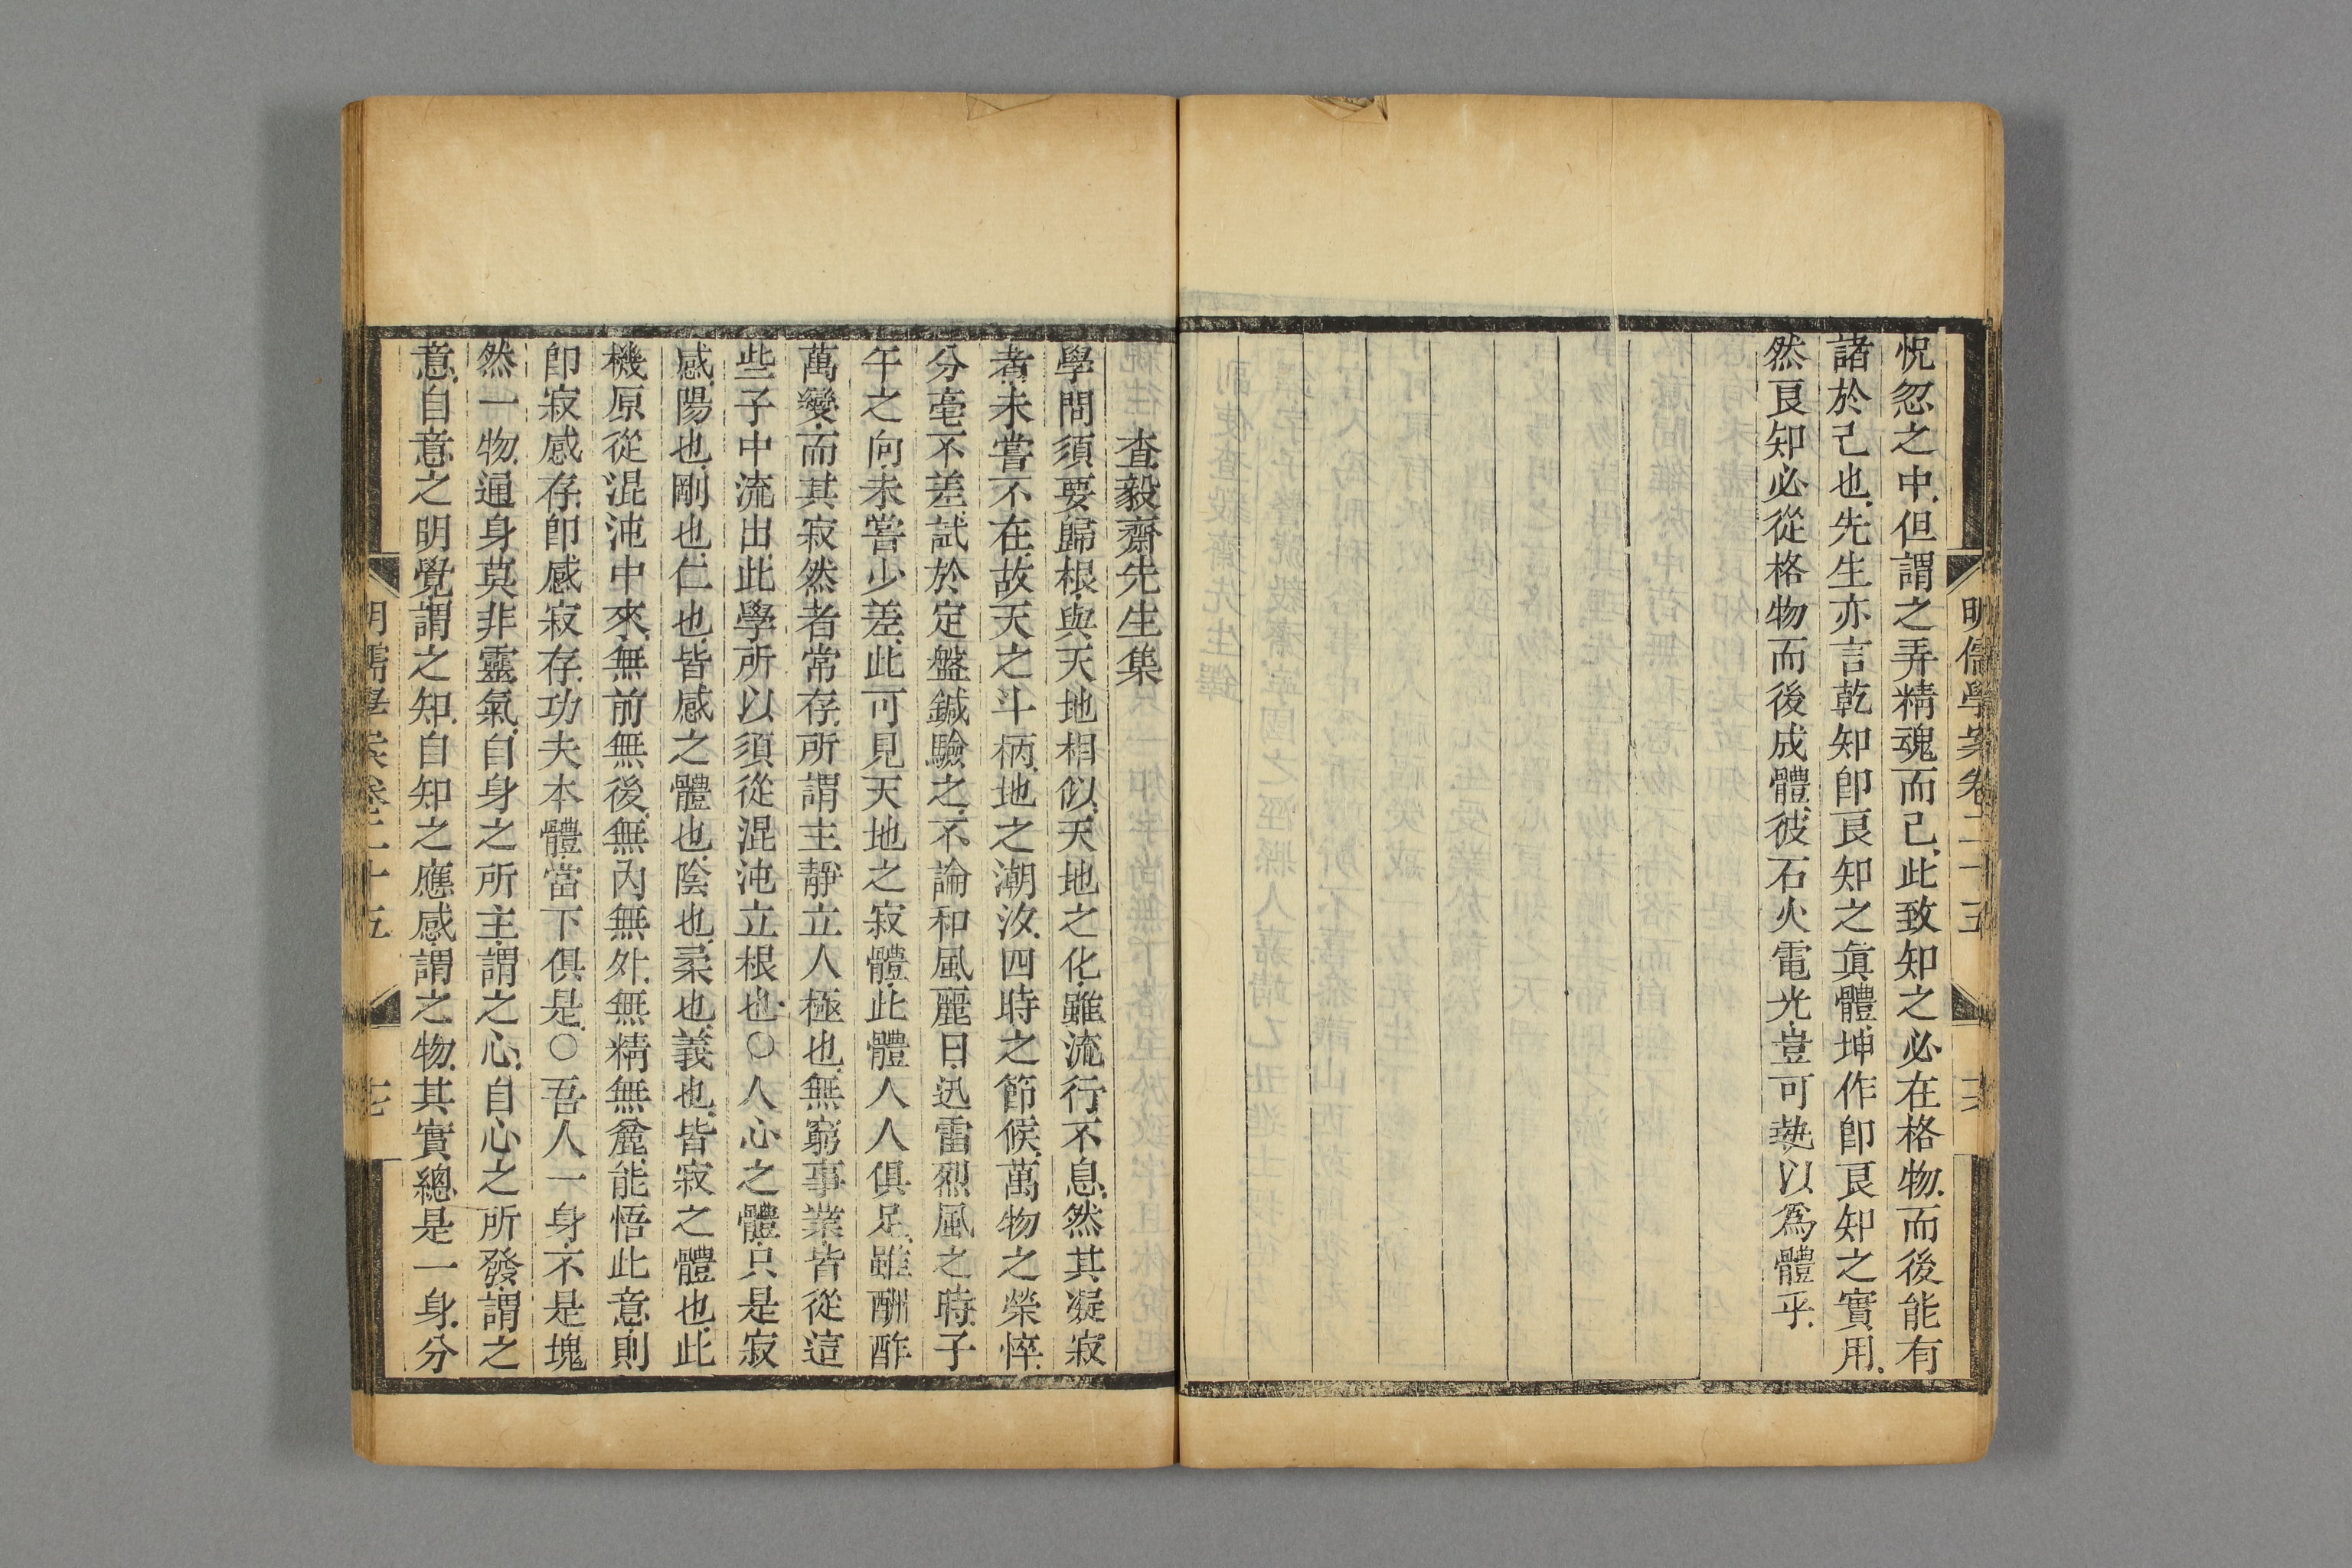 明儒學案卷二十五
怳忽之中.但謂之弄精魂而已.此致知之必在格物.而後能有
諸於己也.先生亦言乾知卽良知之眞體.坤作卽良知之實用.
然良知必從格物而後成體.彼石火電光.豈可執以爲體乎.
查毅齋先生集
學問須要歸根.與天地相似.天地之化.雖流行不息.然其凝寂
者.未嘗不在.故天之斗柄.地之潮汐.四時之節候.萬物之榮悴.
分毫不差.試於定盤鍼驗之.不論和風麗日.迅雷烈風之時.子
午之向.未嘗少差.此可見天地之寂體.此體人人俱足.雖酬酢
萬變.而其寂然者常存.所謂主靜立人極也.無窮事業.皆從這
些子中流出.此學所以須從混沌立根也.○人心之體.只是寂
感.陽也.剛也.仁也.皆感之體也.陰也.柔也.義也.皆寂之體也.此
機原從混沌中來.無前無後.無內無外.無精無麄.能悟此意.則
卽寂感存.卽感寂存.功夫本體.當下俱是.○吾人一身.不是塊
然一物.通身莫非靈氣.自身之所主.謂之心.自心之所發.謂之
意.自意之明覺.謂之知.自知之應感.謂之物.其實總是一身.分
明儒學案卷二十五